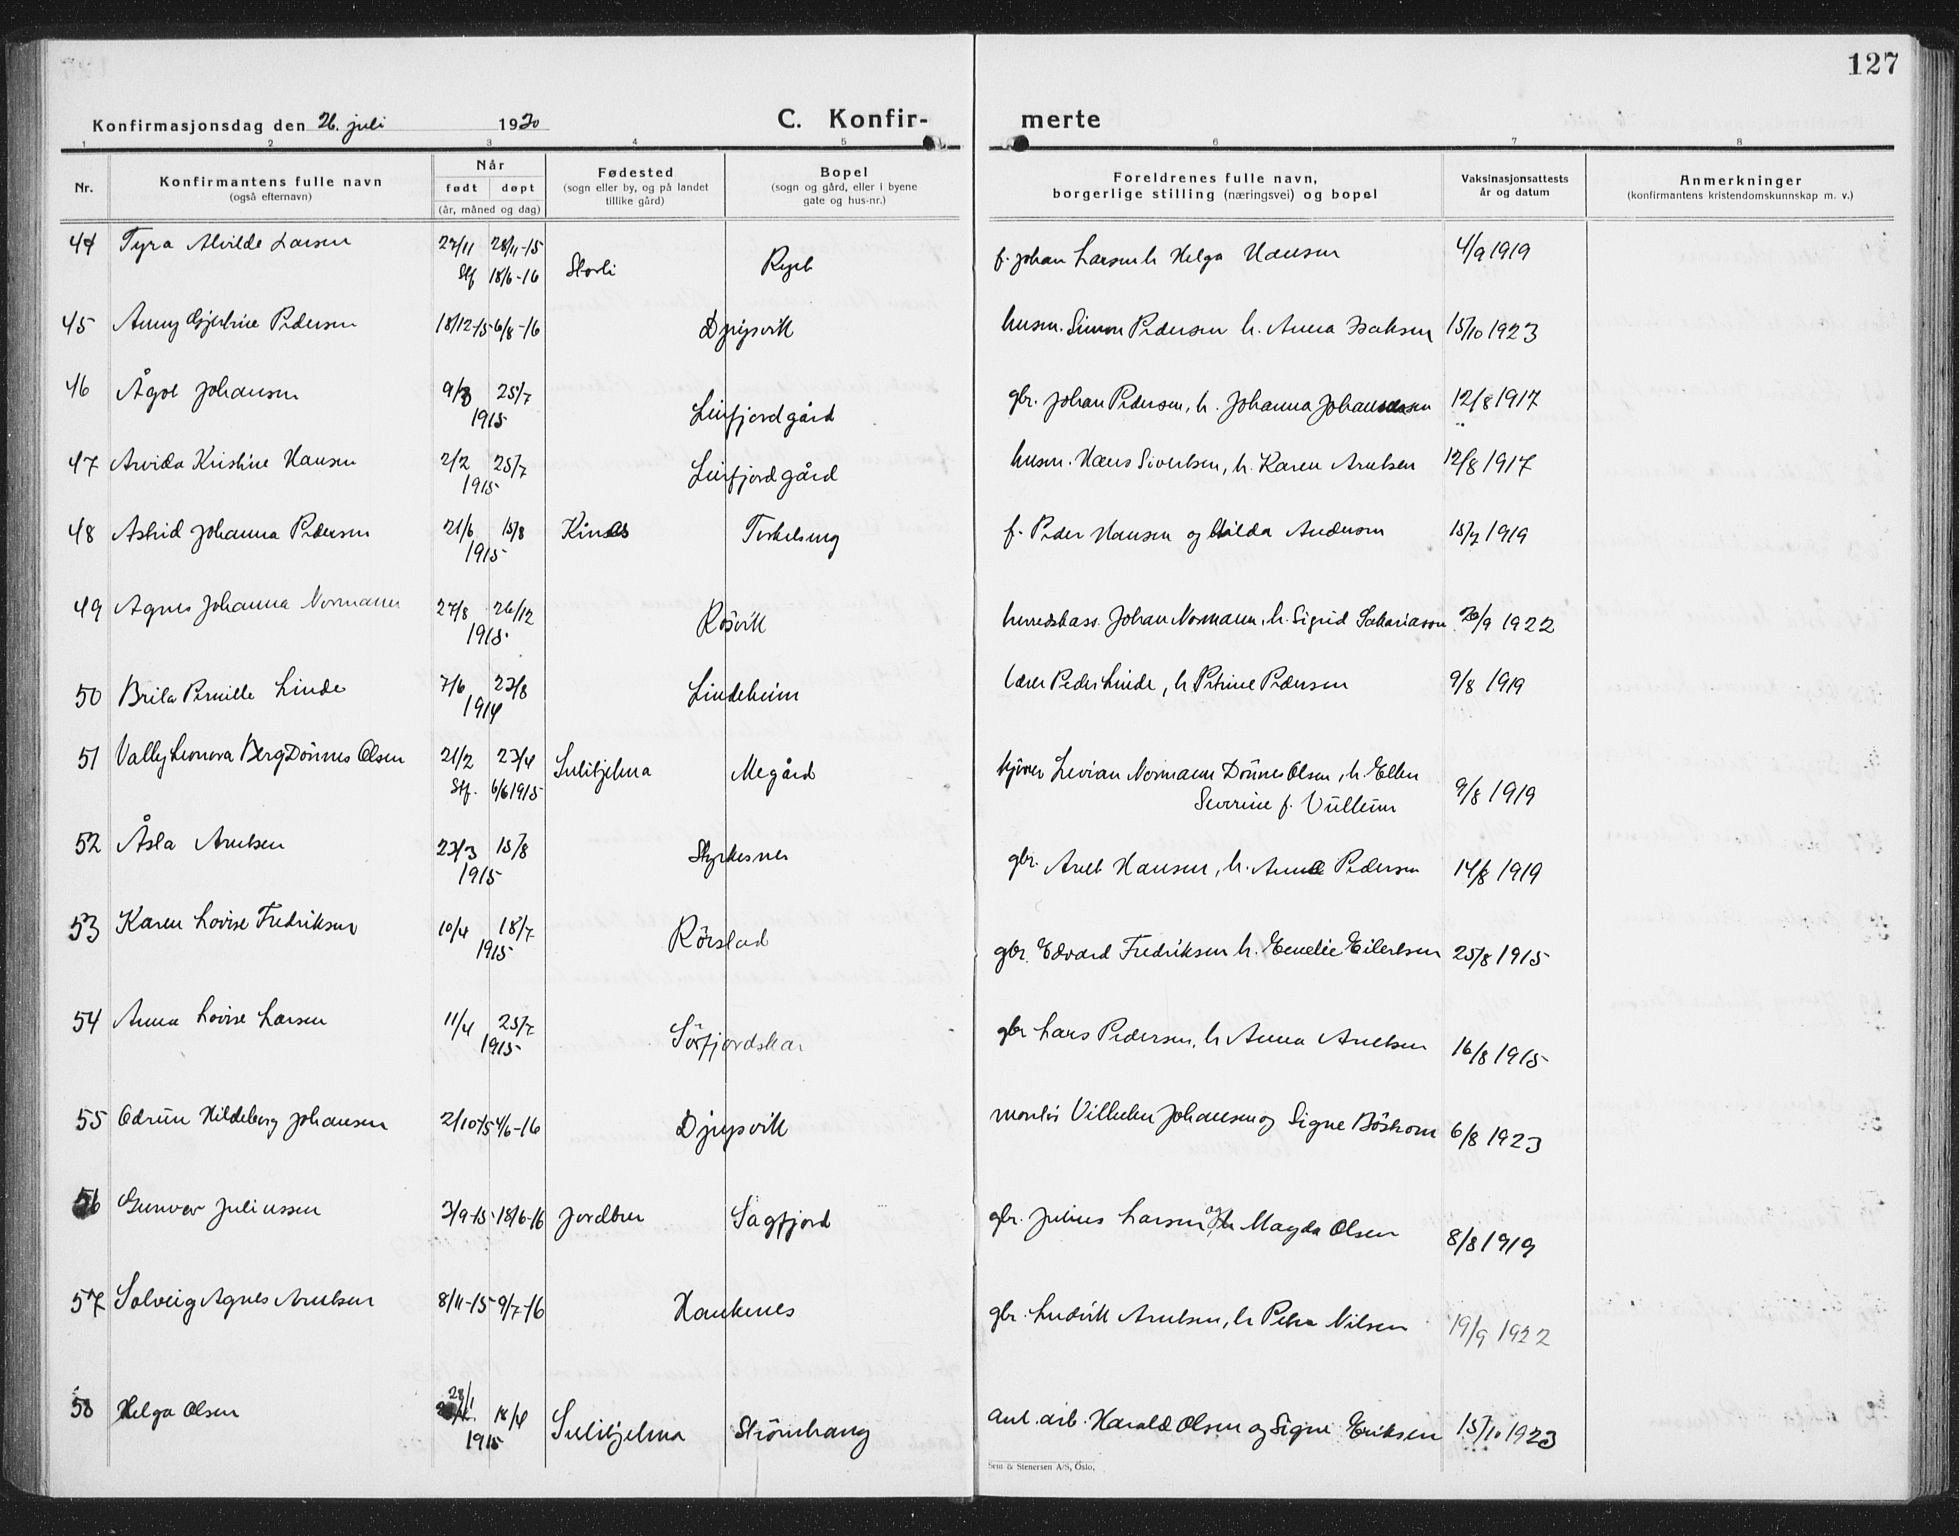 127
Konfirmasjonsdag den 26. juli 1930
C. Konfir-
merte
1 2 3 4 5 6 7 8
Nr. Konfirmantens fulle navn (også efternavn)
Når født døpt (år, måned og dag)
Fødested (sogn eller by, og på landet tillike gård)
Bopel (sogn og gård, eller i byene gate og hus-nr.)
Foreldrenes fulle navn, borgerlige stilling (næringsvei) og bopel
Vaksinasjonsattests år og datum
Anmerkninger (konfirmantens kristendomskunnskap m. v.)
44 Tyra Alvilde Larsen 27/11 28/11-15 Stf 18/6-16 Storli f. Johan Larsen h. Helga Hansen 4/9 1919
45 Anny Gjertine Pedersen 18/12-15 6/8-16 Djupvik husm. Simon Pedersen h. Anna Isaksen 15/10 1923
46 Ågot Johansen 9/3 25/7 1915 Leirfjordgård gbr. Johan Pedersen, h. Johanna Johannessen 12/8 1917
47 Arvida Kristine Hansen 2/2 25/7 1915 Leirfjordgård husm. Hans Sivertsen, h. Karen Arntsen 12/8 1917
48 Astrid Johanna Pedersen 21/6 15/8 1915 Kines Torkelseng f. Peder Hansen og Hilda Andersen 15/7 1919
49 Agnes Johanna Normann 27/8 26/12 1915 Røsvik herredskass. Johan Normann, h. Sigrid Sakariassen 20/9 1922
50 Brita Pernille Linde 7/6 23/8 1914 Lindeheim lærer Peder Linde, h Petrine Pedersen 9/8 1919
51 Vally Leonora Berg Dönnes Olsen 21/2 23/4 Stf. 6/6 1915 Sulitjelma Megård Levian Normann Dönnes Olsen, h. Ellen
Severine f. Vullum 9/8 1919
52 Åsla Arntsen 23/3 15/8 1915 Styrkesnes gbr. Arnt Hansen, h. Anna Pedersen 14/8 1919
53 Karen Lovise Fredriksen 10/4 18/7 1915 Rörstad gbr. Edvard Fredriksen h. Emelie Eilertsen 25/8 1915
54 Anna Lovise Larsen 11/4 25/7 1915 Sörfjordskar gbr Lars Pedersen, h Anna Arntsen 16/8 1915
55 Odrun Hildeborg Johansen 2/10-15 4/6-16 Djupvik montör Vilhelm Johansen og Signe Böstrom 6/8 1923
56 Gunvor Juliussen 3/9-15 18/6-16 Jordbru Sagfjord gbr. Julius Larsen og h Magda Olsen 8/8 1919
57 Solveig Agnes Arntsen 8/11-15 9/7-16 Haukenes gbr. Ludvik Arntsen, h Petra Nilsen 19/9 1922
58 Helga Olsen 28/1 18/4 1915 Sulitjelma Strömhaug anl. arb. Harald Olsen og Signe Eriksen 15/10 1923
Sem & Stenersen A/S, Oslo.